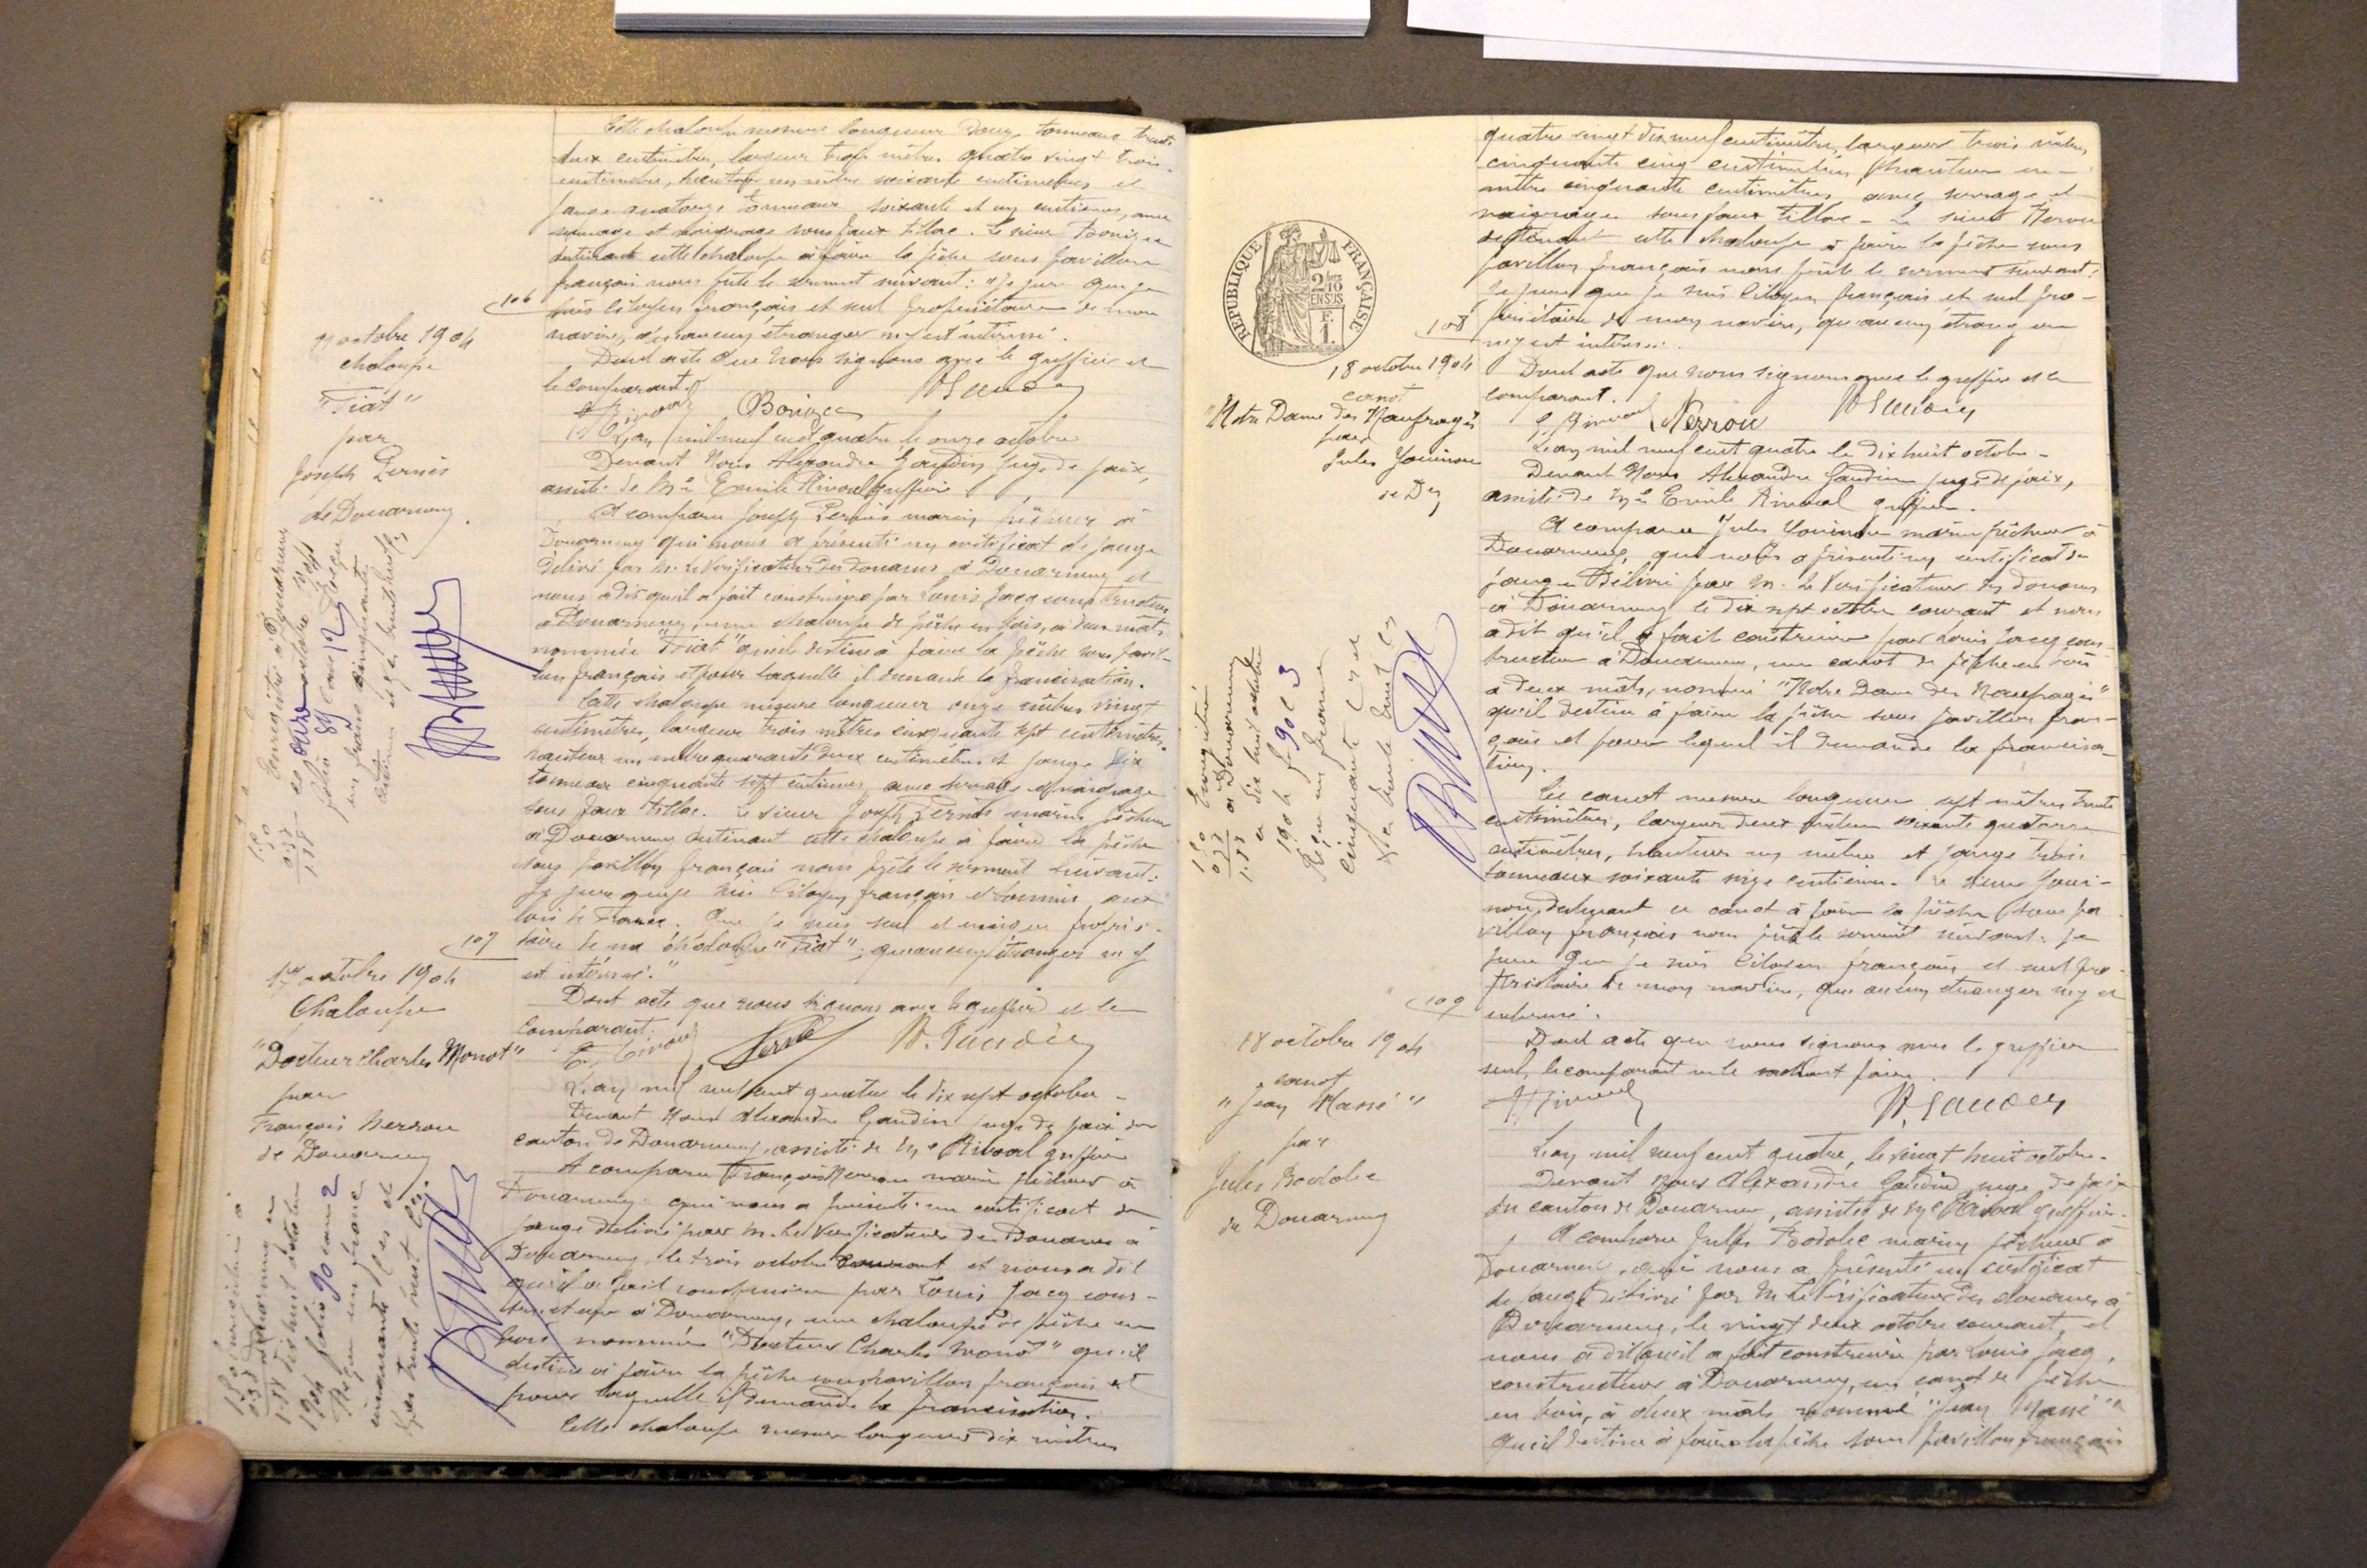 Cette chaloupe mesure longueur douze tonneaux trente
deux centimètres, largeur trois mètres quatre vingt trois
centimètres, hauteur un mètre soixante centimètres et
jauge quatorze tonneaux soixante et un centièmes, avec
serrage et vaigrage sous faux tillac. Le sieur
destinant cette chaloupe à faire la pêche sous pavillon
français nous prête le serment suivant: "Je jure que je
suis citoyen français et seul propriétaire de mon
navire, qu'aucun étranger n'y est intéressé.
Dont acte que nous signons avec le greffier et
le comparant.
106
11 octobre 1904
chaloupe
"Fiat"
par
Joseph Pernès
de Douarnenez.
L'an mil neuf cent quatre le onze octobre
Devant Nous Alexandre Gaudin juge de paix,
assisté de Me Emile Rivoal greffier
A comparu Joseph Pernès marin pêcheur à
Douarnenez qui nous a présenté un certificat de jauge
délivré par M. le Vérificateur des Douanes à Douarnenez et
nous a dit qu'il a fait construire par Louis Jacq constructeur
à Douarnenez, une chaloupe de pêche en bois, à deux mâts
nommée "Fiat" qu'il destine à faire la pêche sous pavil-
lon français et pour laquelle il demande la francisation.
Cette chaloupe mesure longueur onze mètres vingt
centimètres, largeur trois mètres cinquante sept centimètres,
hauteur un mètre quarante deux centimètres et jauge dix
tonneaux cinquante sept centièmes avec serrage et vaigrage
sous faux tillac. Le sieur Joseph Pernès marin pêcheur
à Douarnenez destinant cette chaloupe à faire la pêche
sous pavillon français nous prête le serment suivant:
Je jure que je suis citoyen français et soumis aux
lois de France. Que je suis seul et unique proprié-
taire de ma chaloupe "Fiat"; qu'aucun étranger n'y
est intéressé."
Dont acte que nous signons avec le greffier et le
comparant.
A. Gaudin
107
17 octobre 1904
Chaloupe
"Docteur Charles Monot"
par
François Nerrou
de Douarnenez
L'an mil neuf cent quatre le dix sept octobre -
Devant Nous Alexandre Gaudin juge de paix du
canton de Douarnenez, assisté de Me Rivoal greffier
A comparu François Nerrou marin pêcheur à
Douarnenez qui nous a présenté un certificat de
jauge délivré par M. le Vérificateur des Douanes à
Douarnenez, le trois octobre courant et nous a dit
qu'il a fait construire par Louis Jacq cons-
tructeur à Douarnenez, une chaloupe de pêche en
bois nommée "Docteur Charles Monot" qu'il
destine à faire la pêche sous pavillon français et
pour laquelle il demande la francisation.
Cette chaloupe mesure longueur dix mètres
quatre vingt dix neuf centimètres, largeur trois mètres
cinquante cinq centimètres, hauteur un
mètre cinquante centimètres avec serrage et
vaigrage sous faux tillac - Le sieur Nerrou
destinant cette chaloupe à faire la pêche sous
pavillon français nous prête le serment suivant:
Je jure que je suis citoyen français et seul pro-
priétaire de mon navire, qu'aucun étranger
n'y est intéressé.
Dont acte que nous signons avec le greffier et le
comparant.
Nerrou
A Gaudin
REPUBLIQUE FRANÇAISE
2/10 EN SUS
F. 1.
108
18 octobre 1904
canot
"Notre Dame des Naufragés"
par
Jules Youinou
de Dz
L'an mil neuf cent quatre le dix huit octobre -
Devant Nous Alexandre Gaudin juge de paix,
assisté de Me Emile Rivoal greffier.
A comparu Jules Youinou marin pêcheur à
Douarnenez, qui nous a présenté un certificat de
jauge délivré par M. le Vérificateur des douanes
à Douarnenez le dix sept octobre courant et nous
a dit qu'il a fait construire par Louis Jacq cons-
tructeur à Douarnenez, un canot de pêche en bois
à deux mâts, nommé "Notre Dame des Naufragés"
qu'il destine à faire la pêche sous pavillon fran-
çais et pour lequel il demande la francisa-
tion.
Ce canot mesure longueur sept mètres trente
centimètres, largeur deux mètres soixante quatorze
centimètres, hauteur un mètre et jauge trois
tonneaux soixante seize centièmes. Le sieur Youi-
nou destinant ce canot à faire la pêche sous pa
villon français nous prête le serment suivant: Je
jure que je suis citoyen français et seul pro-
priétaire de mon navire, que aucun étranger n'y est
intéressé.
Dont acte que nous signons avec le greffier
seul, le comparant ne le sachant faire.
A. Gaudin
109
28 octobre 1904
canot
"Jean Massé"
par
Jules Bodolec
de Douarnenez
L'an mil neuf cent quatre, le vingt huit octobre.
Devant Nous Alexandre Gaudin juge de paix
du canton de Douarnenez, assisté de Me Rivoal greffier.
A comparu Jules Bodolec marin pêcheur à
Douarnenez, qui nous a présenté un certificat
de jauge délivré par M. le Vérificateur des douanes à
Douarnenez, le vingt deux octobre courant, et
nous a dit qu'il a fait construire par Louis Jacq,
constructeur à Douarnenez, un canot de pêche
en bois, à deux mâts nommé "Jean Massé"
qu'il destine à faire la pêche sous pavillon français